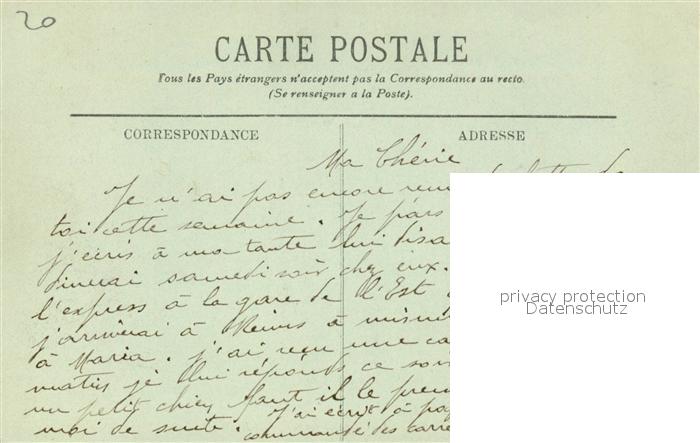 20
CARTE POSTALE
Tous les Pays étrangers n'acceptent pas la Correspondance au recto.
(Se renseigner a la Poste).
CORRESPONDANCE
ADRESSE
Ma Chérie
Je n'ai pas encore reçu de lettre de
toi cette semaine. Je pars
j'écris à ma tante lui disa
dinerai samedi soir chez eux.
l'express à la gare de l'Est
j'arriverai à Reims à minui
à Maria. j'ai reçu une ca
matin je lui réponds ce soi
un petit chien faut il le pren
moi de suite. J'ai écrit à
commandé des carre
privacy protection
Datenschutz